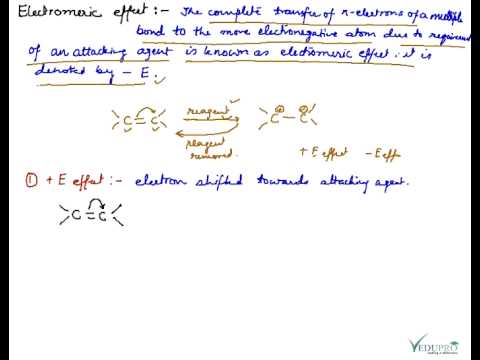 Electromeric effect :- The complete transfer of π-electrons of a multiple
bond to the more electronegative atom due to requirement
of an attacking agent is known as electromeric effect. it is
denoted by - E.
C = C reagent C - C
reagent removed.
+ E effect - E eff
① + E effect :- electron shifted towards attacking agent.
C = C
VEDUPRO